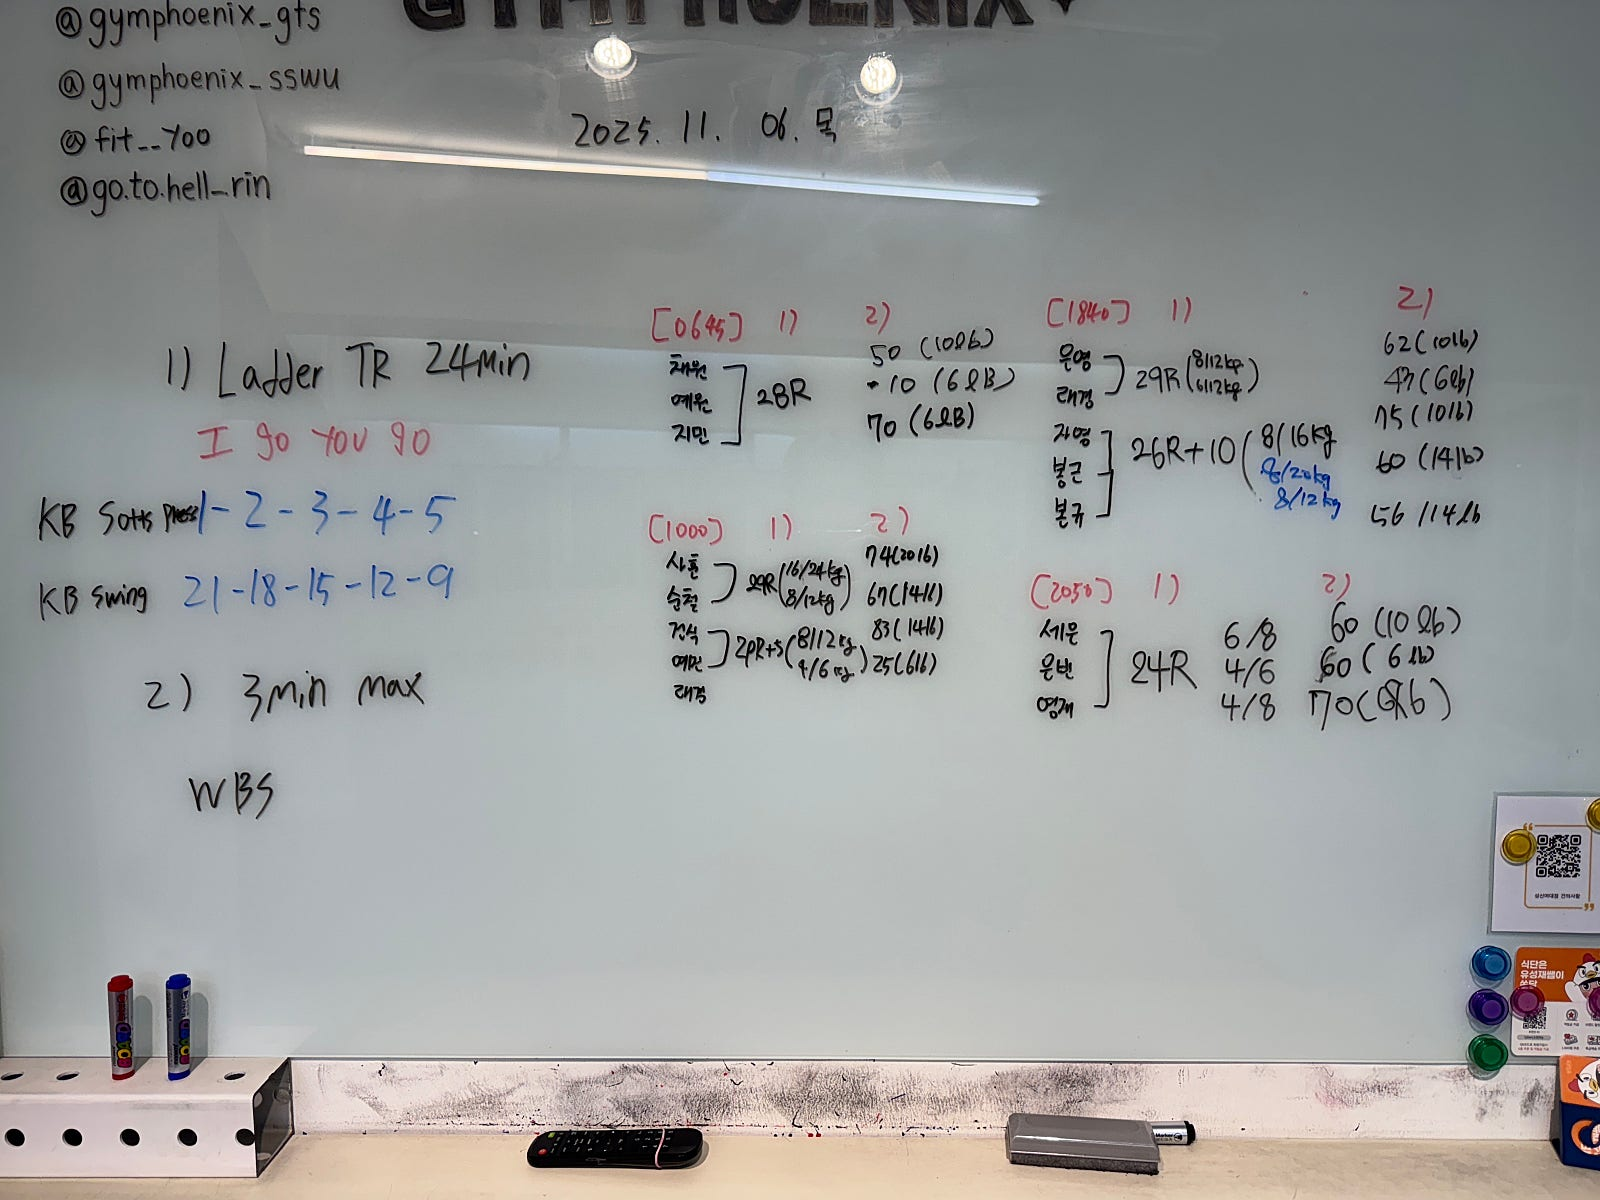 @gymphoenix_gts
GYMPHOENIX
@gymphoenix_sswu
@fit__yoo
@go.to.hell_rin
2025. 11. 06. 목
1) Ladder TR 24min
I go you go
KB Sotts press 1-2-3-4-5
KB Swing 21-18-15-12-9
2) 3min max
WBS
[0645] 1) 2)
채원 50 (10lb)
예원 28R 10 (6lB)
지민 70 (6lB)
[1000] 1) 2)
사훈 29R (16/24kg 74(20lb)
순철 8/12kg) 67(14lb)
건식 29R+5 (8/12kg 83(14lb)
예민 4/6kg) 25(6lb)
래경
[1840] 1) 2)
은영 29R (8/12kg 62(10lb)
래경 6/12kg) 47(6lb)
자영 26R+10 (8/16kg 75(10lb)
봉근 8/20kg 60 (14lb)
본규 8/12kg 56 /14lb
[2050] 1) 2)
세문 6/8 60 (10lb)
은빈 24R 4/6 60 (6lb)
영재 4/8 70 (6lb)
성신여대점 건의사항
식단은
유성재쌤이
쏜닭
Marker